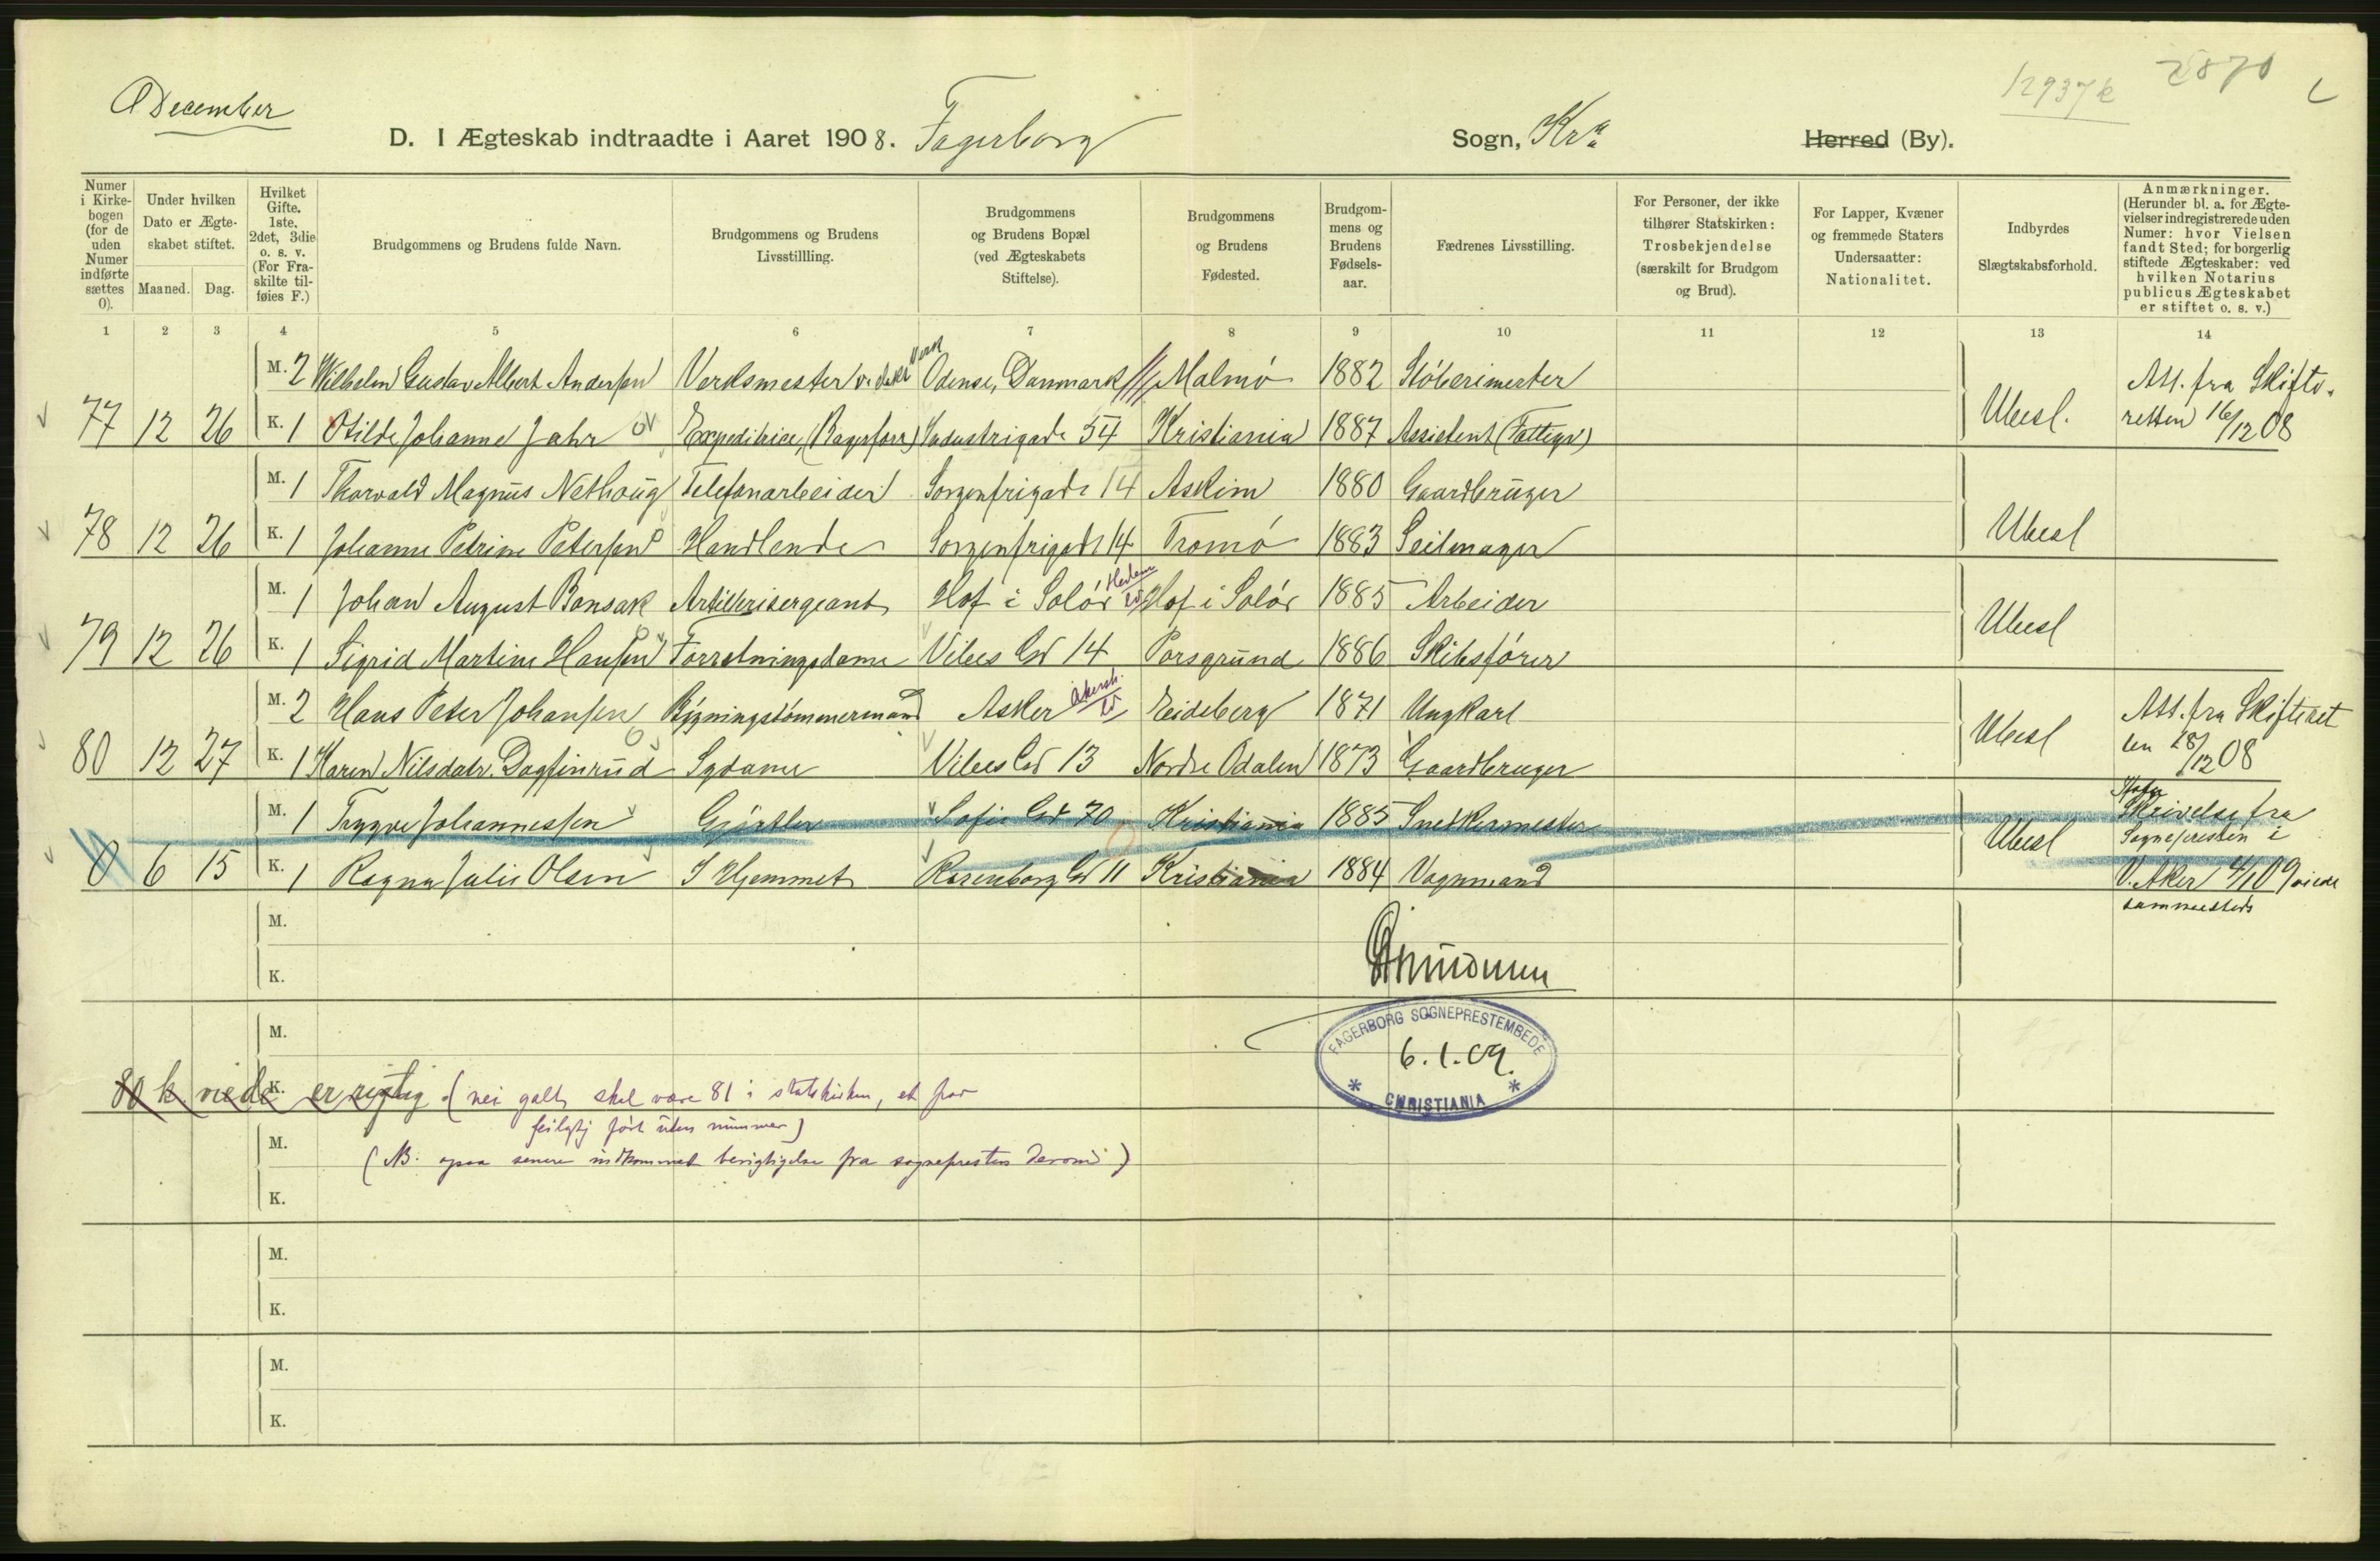 December
12937 k
2870
D. I Ægteskab indtraadte i Aaret 1908. Fagerborg Sogn, Kra Herred (By).
Numer i Kirkebogen (for de uden Numer indførte sættes 0).
Under hvilken Dato er Ægteskabet stiftet.
Maaned. Dag.
Hvilket Gifte. 1ste, 2det, 3die o. s. v. (For Fraskilte tilføies F.)
Brudgommens og Brudens fulde Navn.
Brudgommens og Brudens Livsstillling.
Brudgommens og Brudens Bopæl (ved Ægteskabets Stiftelse).
Brudgommens og Brudens Fødested.
Brudgommens og Brudens Fødselsaar.
Fædrenes Livsstilling.
For Personer, der ikke tilhører Statskirken: Trosbekjendelse (særskilt for Brudgom og Brud).
For Lapper, Kvæner og fremmede Staters Undersaatter: Nationalitet.
Indbyrdes Slægtskabsforhold.
Anmærkninger. (Herunder bl. a. for Ægtevielser indregistrerede uden Numer: hvor Vielsen fandt Sted; for borgerlig stiftede Ægteskaber: ved hvilken Notarius publicus Ægteskabet er stiftet o. s. v.)
1 2 3 4 5 6 7 8 9 10 11 12 13 14
M. 2 Wilhelm Gustav Albert Andersen Verksmester Odense, Danmark Malmö 1882 Stöberimester Att. fra Skifte-
77 12 26 K. 1 Otilde Johanne Jahr Expeditrice, Industrigade 54 Kristiania 1887 Assistent (Fattigv) Ubesl. retten 16/12 08
M. 1 Thorvald Magnus Nethaug Telefonarbeider Sorgenfrigade 14 Askim 1880 Gaardbruger
78 12 26 K. 1 Johanne Petrine Petersen Handlende Sorgenfrigade 14 Tromö 1883 Seilmager Ubesl
M. 1 Johan August Bonsak Artillerisergeant Hof i Solör Hedem Hof i Solör 1885 Arbeider
79 12 26 K. 1 Sigrid Martine Hansen Forretningsdame Vibes Gd 14 Porsgrund 1886 Skibsförer Ubesl
M. 2 Hans Peter Johansen Bygningstömmermand Asker Akersh. Eidsberg 1871 Ungkarl Att. fra Skifteret
80 12 27 K. 1 Karen Nilsdatr. Dagfinrud Sydame Vibes Gd 13 Nordre Odalen 1873 Gaardbruger Ubesl ten 28/12 08
M. 1 Trygve Johannessen Gjörtler Sofies Gd 70 Kristiania 1885 Snedkermester Skrivelse fra
Sognepresten i
0 6 15 K. 1 Ragna Julie Olsen I Hjemmet Rosenborg Gd 11 Kristiania 1884 Vognmand Ubesl V. Aker 4/1 09 viede
sammesteds
M.
K.
M.
FAGERBORG SOGNEPRESTEMBEDE
6.1.09.
CHRISTIANIA
K.
80 k viede er rigtig (nei galt, skal være 81 i statskirken, et par
feilagtig fört uden nummer)
M.
(NB. ogsaa senere indkommet berigtigelse fra sognepresten derom)
K.
M.
K.
M.
K.